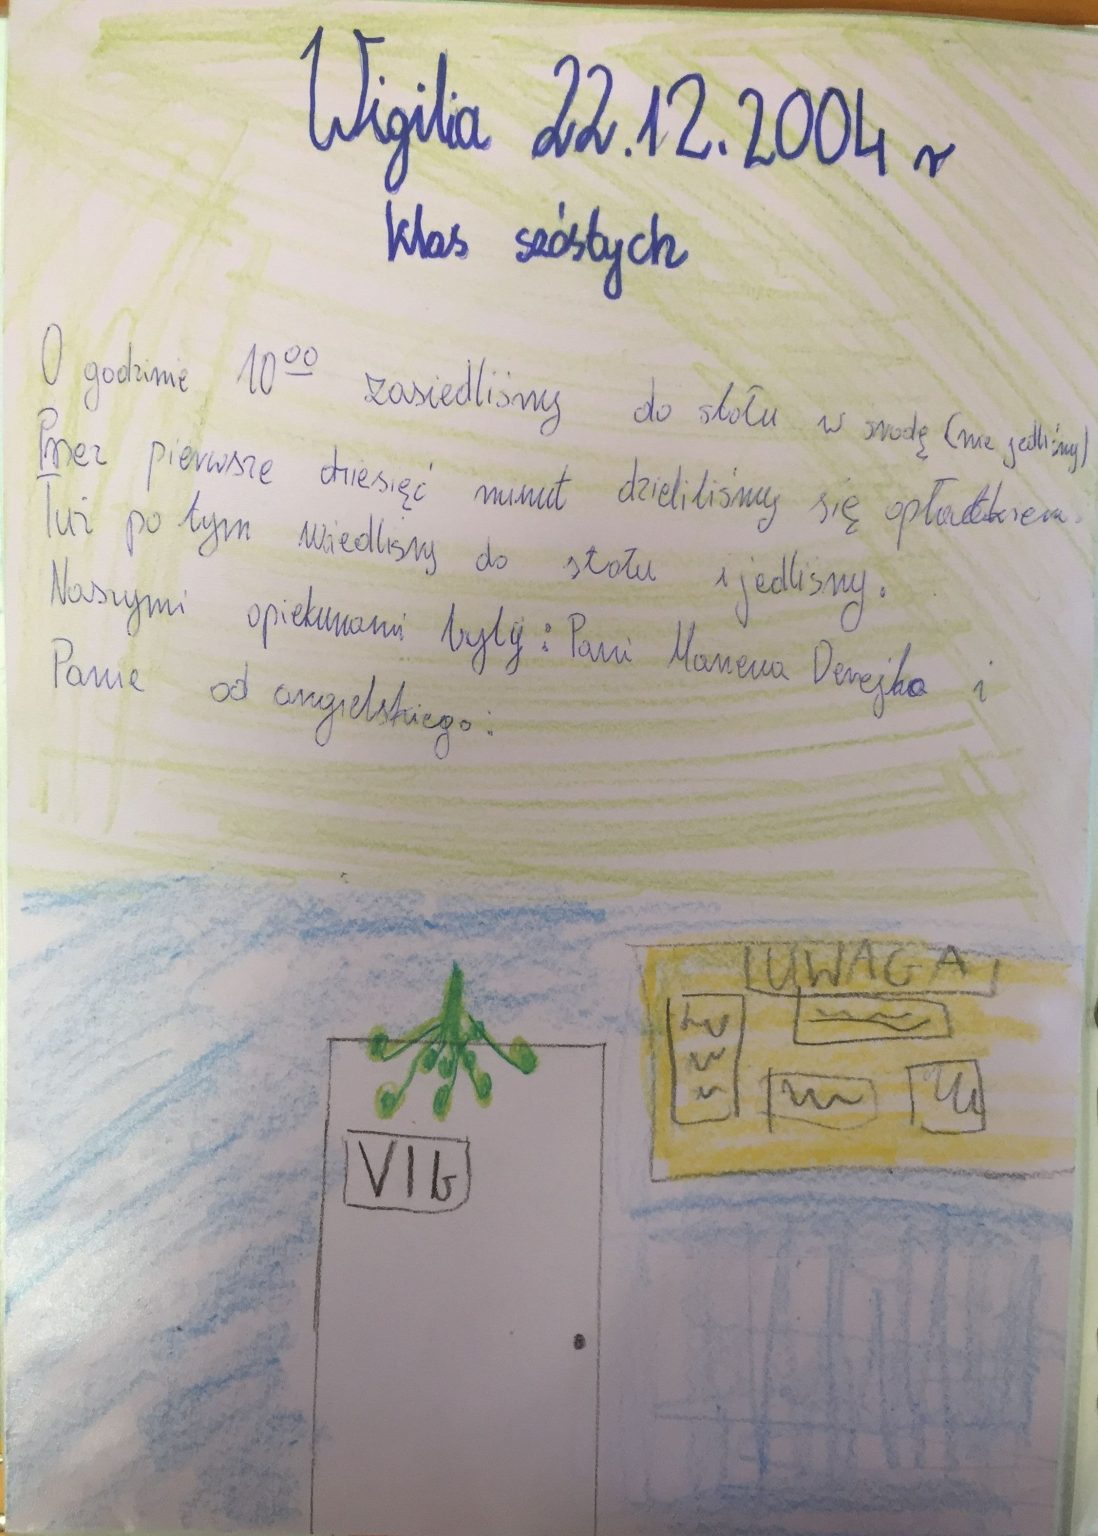 Wigilia 22.12.2004 r
klas szóstych
O godzinie 10⁰⁰ zasiedliśmy do stołu w środę (nie jedliśmy)
Przez pierwsze dziesięć minut dzieliliśmy się opłatkiem.
Tuż po tym siedliśmy do stołu i jedliśmy.
Naszymi opiekunami były: Pani Marzena Derejko i
Panie od angielskiego.
UWAGA
VI b